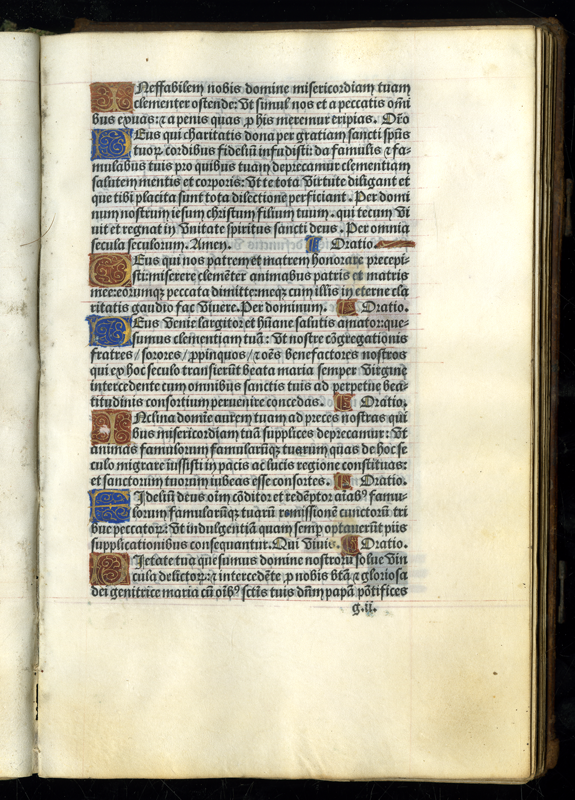 INeffabilem nobis domine misericordiam tuam
clementer ostende: vt simul nos et a peccatis oĩni
bus exuas: ⁊ a penis quas ꝓ his meremur eripias. Oro
DEus qui charitatis dona per gratiam sancti spũs
tuoꝝ cordibus fideliũ infudisti: da famulis ⁊ fa-
mulabus tuis pro quibus tuam deprecamur clementiam
salutem mentis et corporis: vt te tota virtute diligant et
que tibi placita sunt tota dilectione perficiant. Per domi
num nostrum iesum christum filium tuum. qui tecum vi
uit et regnat in vnitate spiritus sancti deus. Per omnia
secula seculorum. Amen. Oratio.
DEus qui nos patrem et matrem honorare precepi-
sti: miserere clemẽter animabus patris et matris
mee: eorumqꝫ peccata dimitte: meqꝫ cum illis in eterne cla
ritatis gaudio fac viuere. Per dominum. Oratio.
DEus venie largitor et hũane salutis amator: que-
sumus clementiam tuã: vt nostre cõgregationis
fratres / sorores / ꝓpinquos / ⁊ oẽs benefactores nostros
qui ex hoc seculo transierũt beata maria semper virgine
intercedente cum omnibus sanctis tuis ad perpetue bea-
titudinis consortium peruenire concedas. Oratio.
INclina domie aurem tuam ad preces nostras qui
bus misericordiam tuã supplices deprecamur: vt
animas famulorum famularũqꝫ tuarum quas de hoc se
culo migrare iussisti in pacis ac lucis regione constituas:
et sanctorum tuorum iubeas esse consortes. Oratio.
FIdeliũ deus oĩm cõditor et redẽptor aĩabꝰ famu-
lorum famularũqꝫ tuarũ remissionẽ cunctorũ tri
bue peccatoꝝ: vt indulgentiã quam semꝑ optauerũt piis
supplicationibus consequantur. Qui viuis. Oratio.
PIetate tua quesumus domine nostrorũ solue vin
cula delictoꝝ: ⁊ intercedẽte ꝓ nobis btã ⁊ gloriosa
dei genitrice maria cũ oĩbꝰ sctĩs tuis dñm papã põtifices
g.ii.